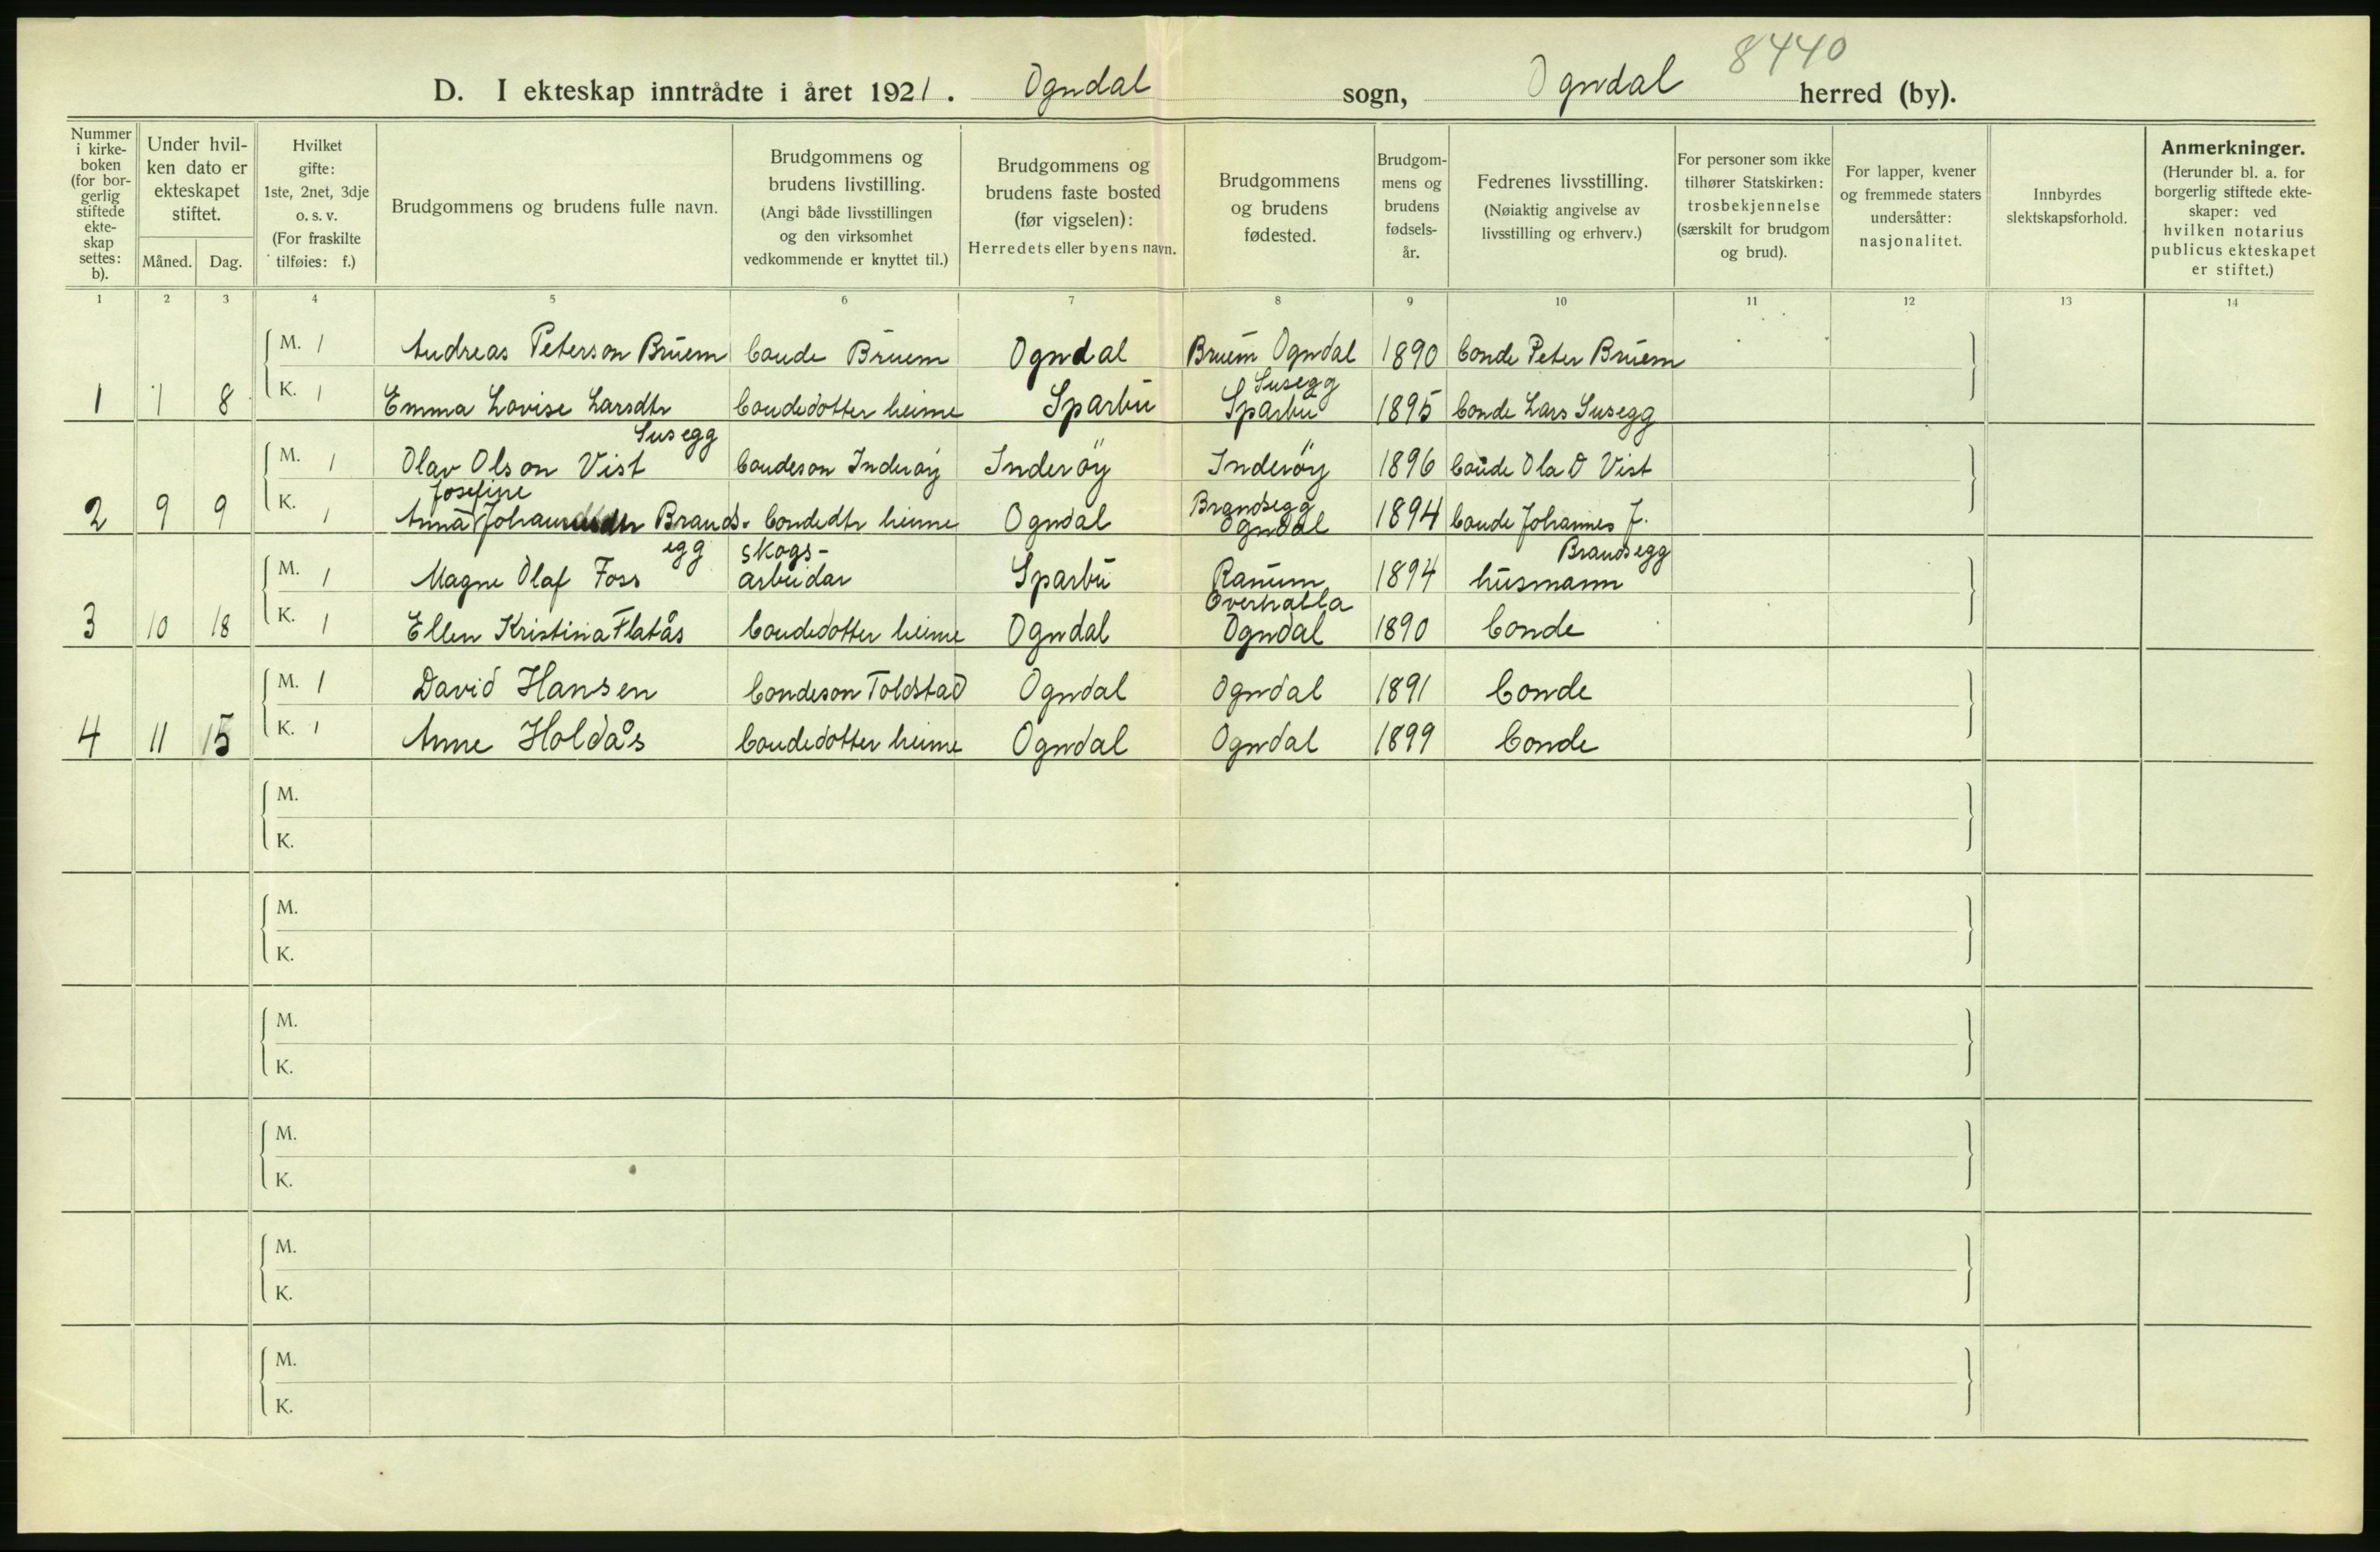 8440
D. I ekteskap inntrådte i året 1921. Ogndal sogn, Ogndal herred (by).
Nummer i kirke-boken (for bor-gerlig stiftede ekte-skap settes: b).
Under hvil-ken dato er ekteskapet stiftet.
Måned. Dag.
Hvilket gifte: 1ste, 2net, 3dje o. s. v. (For fraskilte tilføies: f.)
Brudgommens og brudens fulle navn.
Brudgommens og brudens livstilling. (Angi både livsstillingen og den virksomhet vedkommende er knyttet til.)
Brudgommens og brudens faste bosted (før vigselen): Herredets eller byens navn.
Brudgommens og brudens fødested.
Brudgom-mens og brudens fødsels-år.
Fedrenes livsstilling. (Nøiaktig angivelse av livsstilling og erhverv.)
For personer som ikke tilhører Statskirken: trosbekjennelse (særskilt for brudgom og brud).
For lapper, kvener og fremmede staters undersåtter: nasjonalitet.
Innbyrdes slektskapsforhold.
Anmerkninger. (Herunder bl. a. for borgerlig stiftede ekte-skaper: ved hvilken notarius publicus ekteskapet er stiftet.)
1 2 3 4 5 6 7 8 9 10 11 12 13 14
M. 1 Andreas Peterson Bruem bonde Bruem Ogndal Bruem Ogndal 1890 bonde Peter Bruem
1 1 8 K. 1 Emma Lovise Larsdtr Susegg bondedotter heime Sparbu Susegg Sparbu 1895 bonde Lars Susegg
M. 1 Olav Olson Vist bondeson Inderøy Inderöy Inderöy 1896 bonde Ola O Vist
2 9 9 K. 1 Anna Josefine Johannesdtr Brands-egg bondedtr heime Ogndal Brandsegg Ogndal 1894 bonde Johannes J. Brandsegg
M. 1 Magne Olaf Foss skogs-arbeidar Sparbu Ranum Overhalla 1894 husmann
3 10 18 K. 1 Ellen Kristina Flatås bondedotter heime Ogndal Ogndal 1890 bonde
M. 1 David Hansen bondeson Toldstad Ogndal Ogndal 1891 bonde
4 11 15 K. 1 Anne Holdås bondedotter heime Ogndal Ogndal 1899 bonde
M.
K.
M.
K.
M.
K.
M.
K.
M.
K.
M.
K.